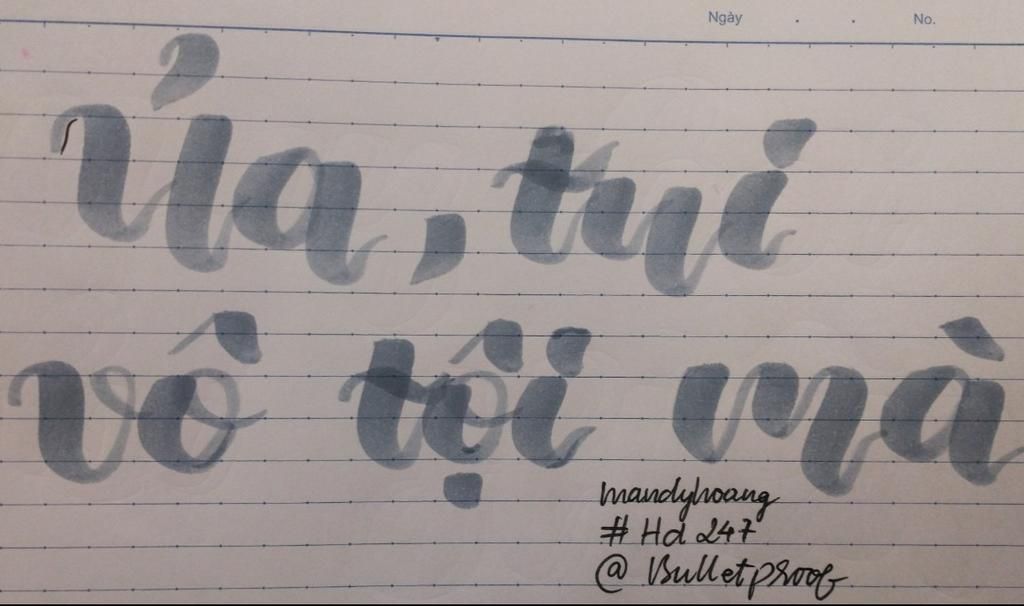 Ngày . . No.
Ủa, tui
vô tội mà
mandyhoang
# Hd 247
@ Bulletproof